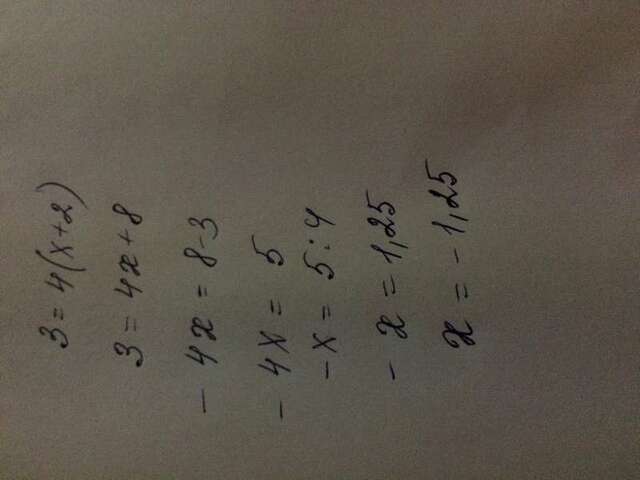 3 = 4(x+2)
3 = 4x+8
- 4x = 8-3
- 4x = 5
-x = 5:4
- x = 1,25
x = -1,25